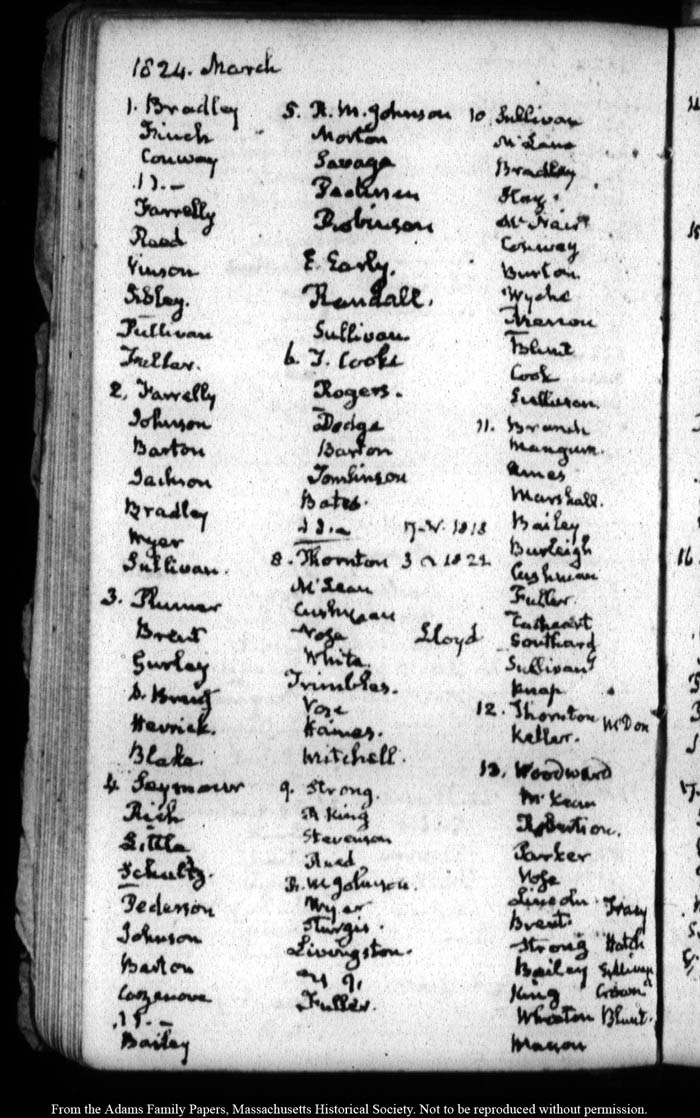 1824. March
1. Bradley
Finch
Conway
Farrelly
Reed
Vinson
Sibley.
Sullivan
Fuller.
2. Farrelly
Johnson
Barton
Jackson
Bradley
Wyer
Sullivan.
3. Plumer
Brent
Gurley
D. Brent
Herrick.
Blake.
4. Seymour
Rich
Little
Schultz.
Pederson
Johnson
Barton
Cazenove
Bailey
5. R. M. Johnson
Morton
Savage
Pedersen
Robinson
E. Early.
Randall.
Sullivan.
6. T. Cooke
Rogers.
Dodge
Barton
Tomlinson
Bates.
8. Thornton
McLean
Cushman
Vose
Lloyd
White.
Trimbles.
Vose
Haines.
Mitchell.
9. Strong.
R King
Stevenson
Reed
R. M. Johnson.
Wyer
Sturgis.
Livingston.
Fuller.
10. Sullivan
McLane
Bradley
Hay.
McNair
Conway
Burton
Wyche
Blunt
Cook
Sullivan.
11. Branch
Mangum.
Ames
Marshall.
Bailey
Burleigh
Cushman
Fuller.
Cathcart
Southard
Sullivan
Knap
12. Thornton
Keller.
13. Woodward
McKean
Robertson.
Parker
Vose
Lincoln Tracy
Brent.
Strong Hatch
Bailey Sullivan
King Crown
Wheaton Blunt.
Mason
From the Adams Family Papers, Massachusetts Historical Society. Not to be reproduced without permission.